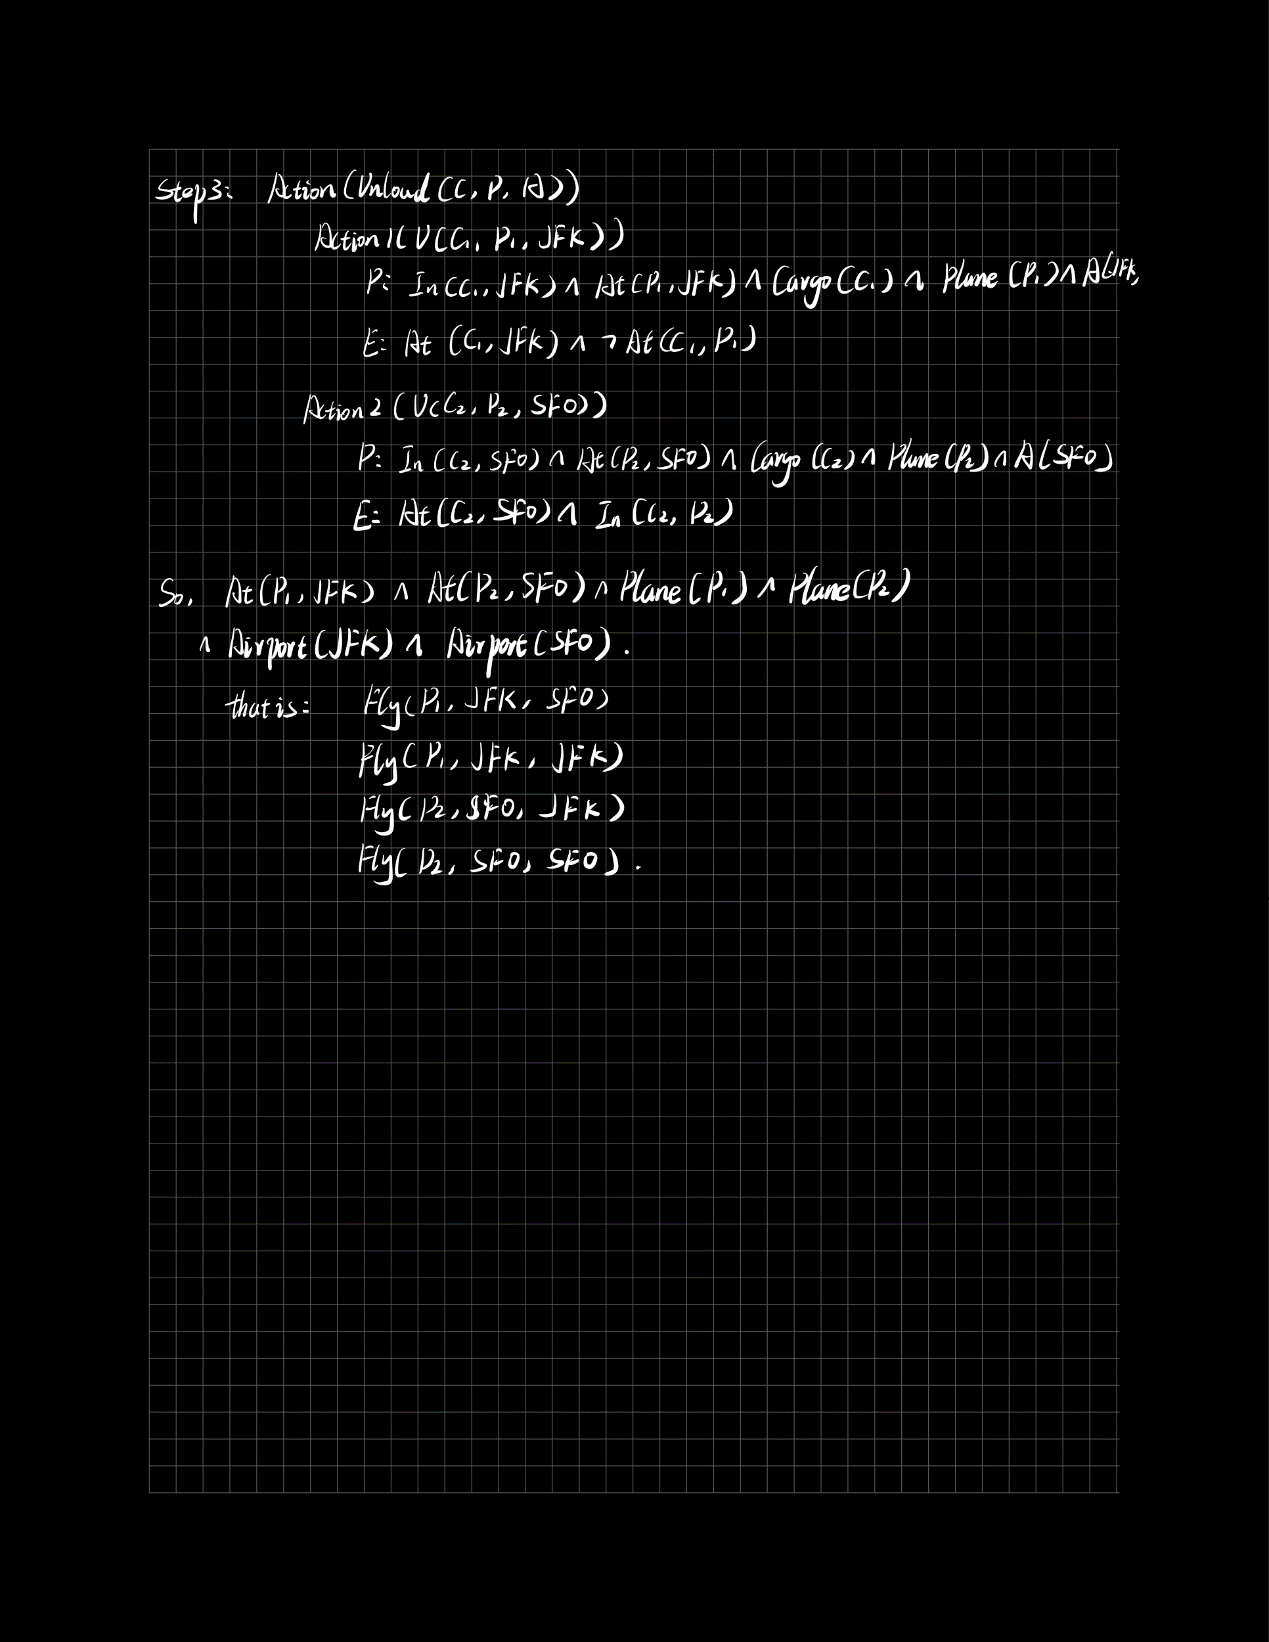 Step3: Action(Unload(C, P, A))
Action1(U(C₁, P₁, JFK))
P: In(C₁, JFK) ∧ At(P₁, JFK) ∧ Cargo(C₁) ∧ Plane(P₁) ∧ A(JFK)
E: At (C₁, JFK) ∧ ¬ At(C₁, P₁)
Action2(U(C₂, P₂, SFO))
P: In(C₂, SFO) ∧ At(P₂, SFO) ∧ Cargo(C₂) ∧ Plane(P₂) ∧ A(SFO)
E: At(C₂, SFO) ∧ In(C₂, P₂)
So, At(P₁, JFK) ∧ At(P₂, SFO) ∧ Plane(P₁) ∧ Plane(P₂)
∧ Airport(JFK) ∧ Airport(SFO).
that is: Fly(P₁, JFK, SFO)
Fly(P₁, JFK, JFK)
Fly(P₂, SFO, JFK)
Fly(P₂, SFO, SFO).